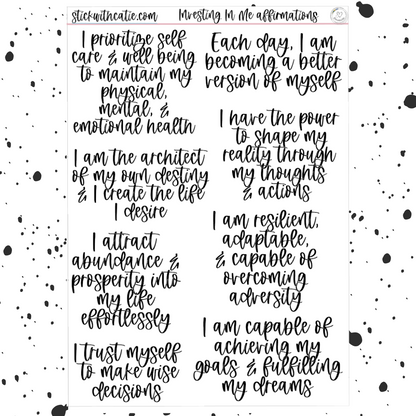 stickwithcatie.com Investing In Me affirmations
I prioritize self
care & well being
to maintain my
physical,
mental, &
emotional health
I am the architect
of my own destiny
& I create the life
I desire
I attract
abundance &
prosperity into
my life
effortlessly
I trust myself
to make wise
decisions
Each day, I am
becoming a better
version of myself
I have the power
to shape my
reality through
my thoughts
& actions
I am resilient,
adaptable,
& capable of
overcoming
adversity
I am capable of
achieving my
goals & fulfilling
my dreams